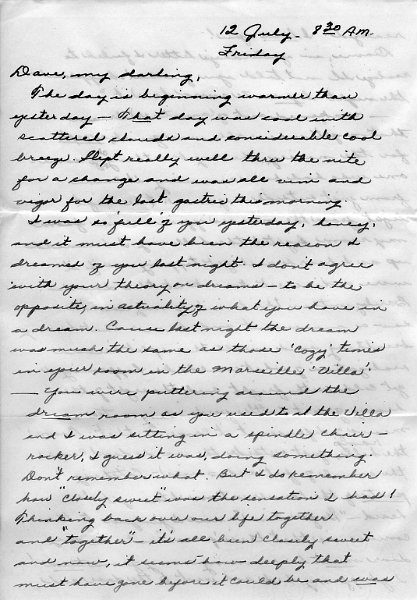 12 July - 8:30 A.M.
Friday
Dave, my darling,
The day is beginning warmer than
yesterday - That day was cool with
scattered clouds and considerable cool
breeze. Slept really well thru the nite
for a change and was all vim and
vigor for the last gastric this morning
I was so 'full' of you yesterday, honey,
and it must have been the reason I
dreamed of you last night. I don't agree
with your theory on dreams - to be the
opposite, in actuality, of what you have in
a dream. Cause last night the dream
was much the same as those 'cozy' times
in your room in the Marseille 'Villa'.
- You were puttering around the
dream room as you used to at the Villa
and I was sitting in a spindle chair -
rocker, I guess it was, doing something.
Don't remember what. But I do remember
how "closely sweet" was the sensation I had!
Thinking back over our life together
and "together" - it's all been closely sweet
and now, it seems how deeply that
must have gone before it could be and was